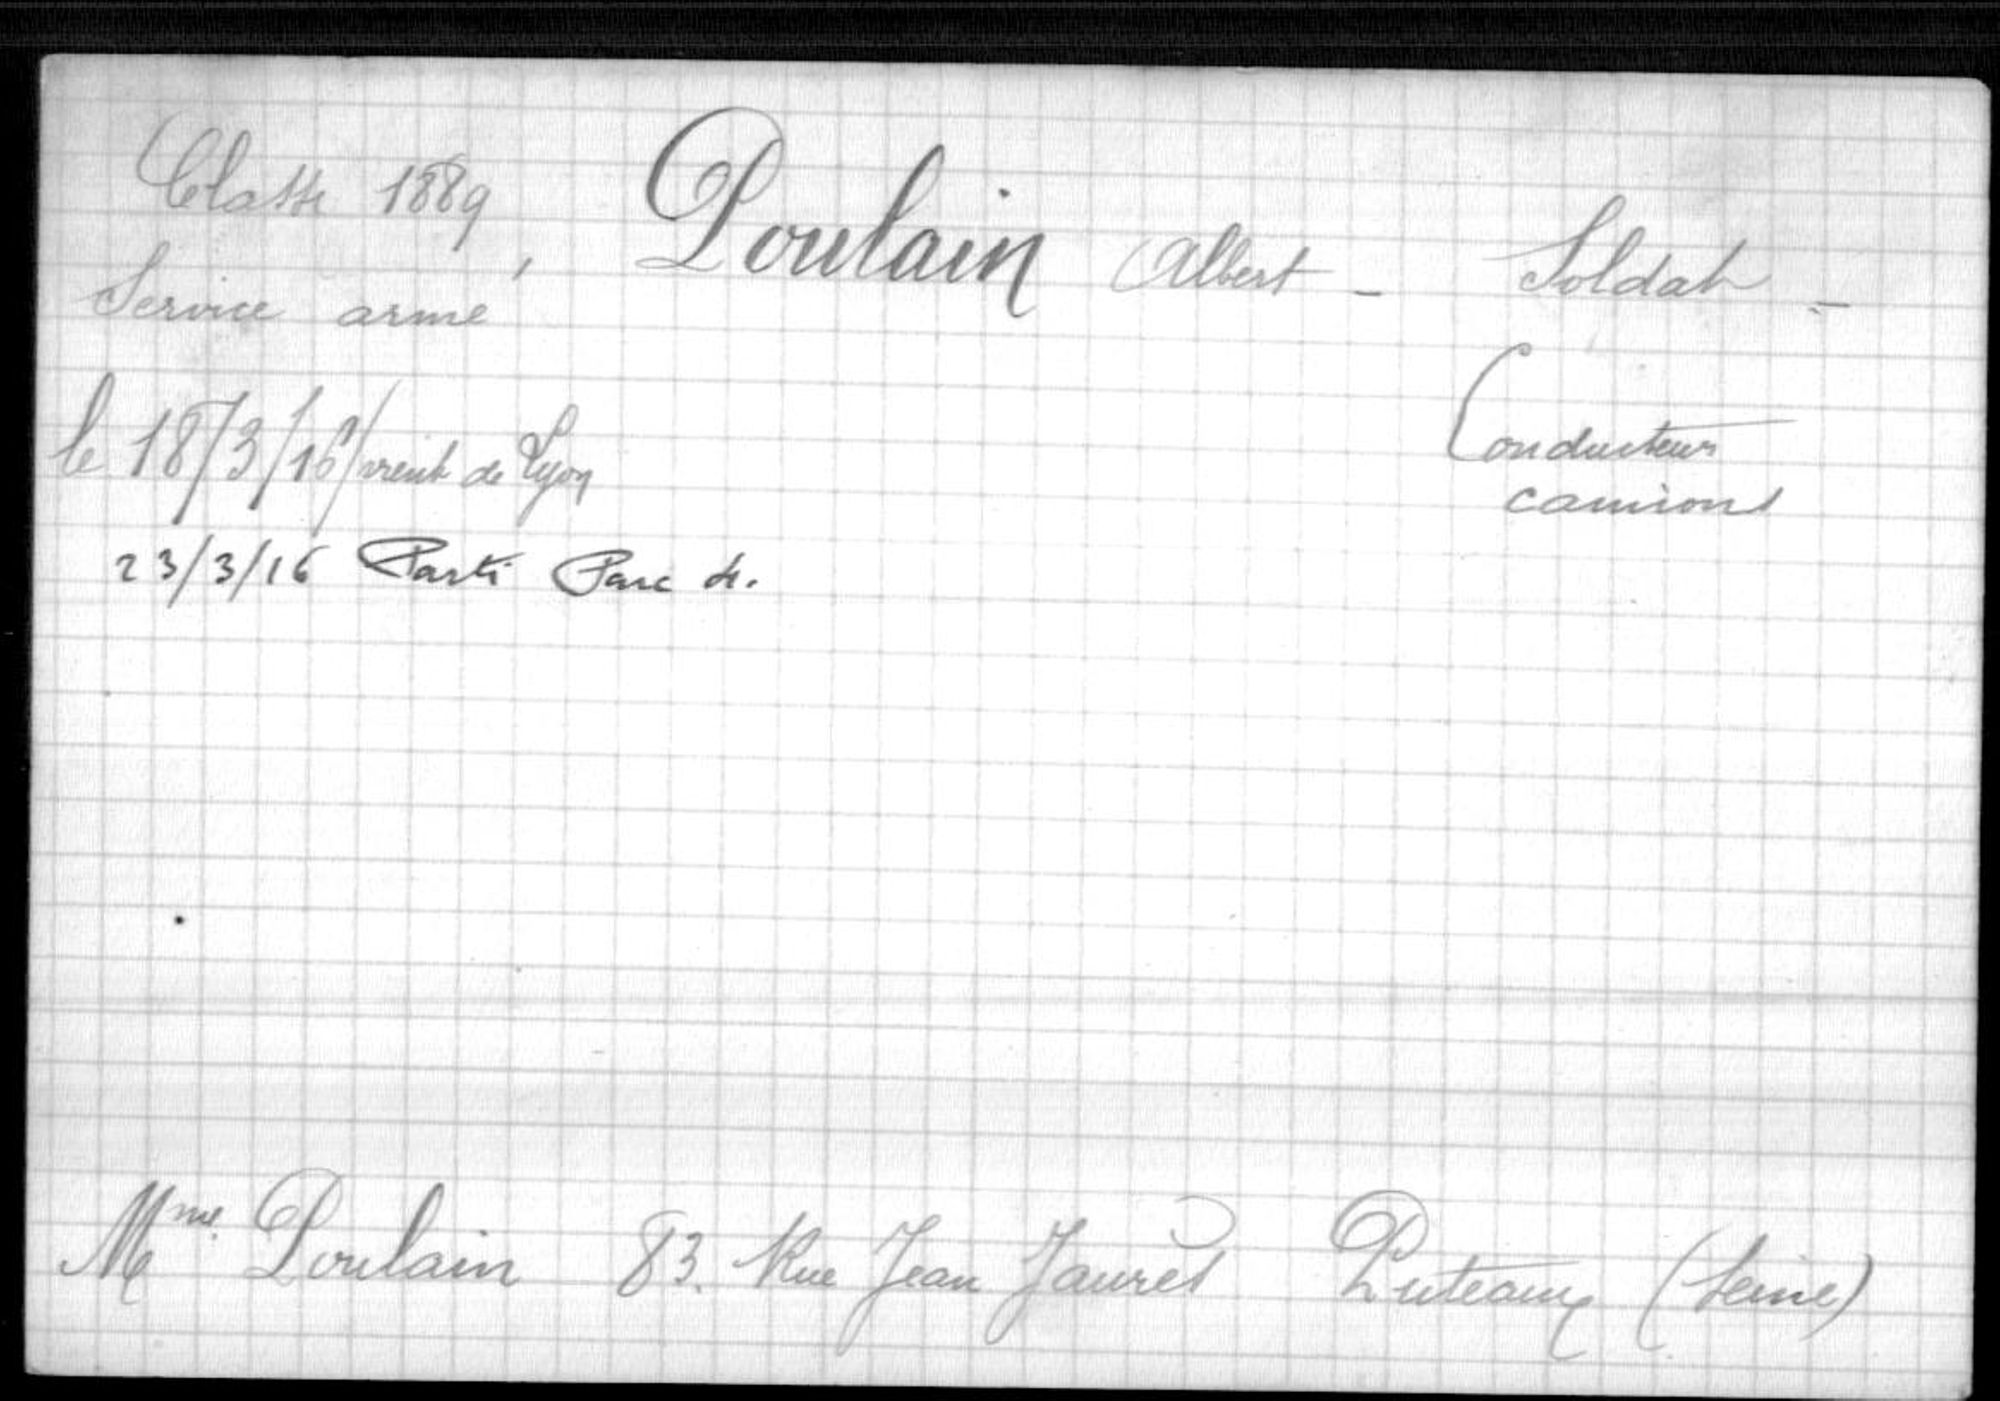 Classe 1889 Poulain Albert - Soldat -
Service armé
Conducteur
camions
le 18/3/16/vient de Lyon
23/3/16 Parti Parc
Mme Poulain 83. Rue Jean Jaurès Puteaux (Seine)